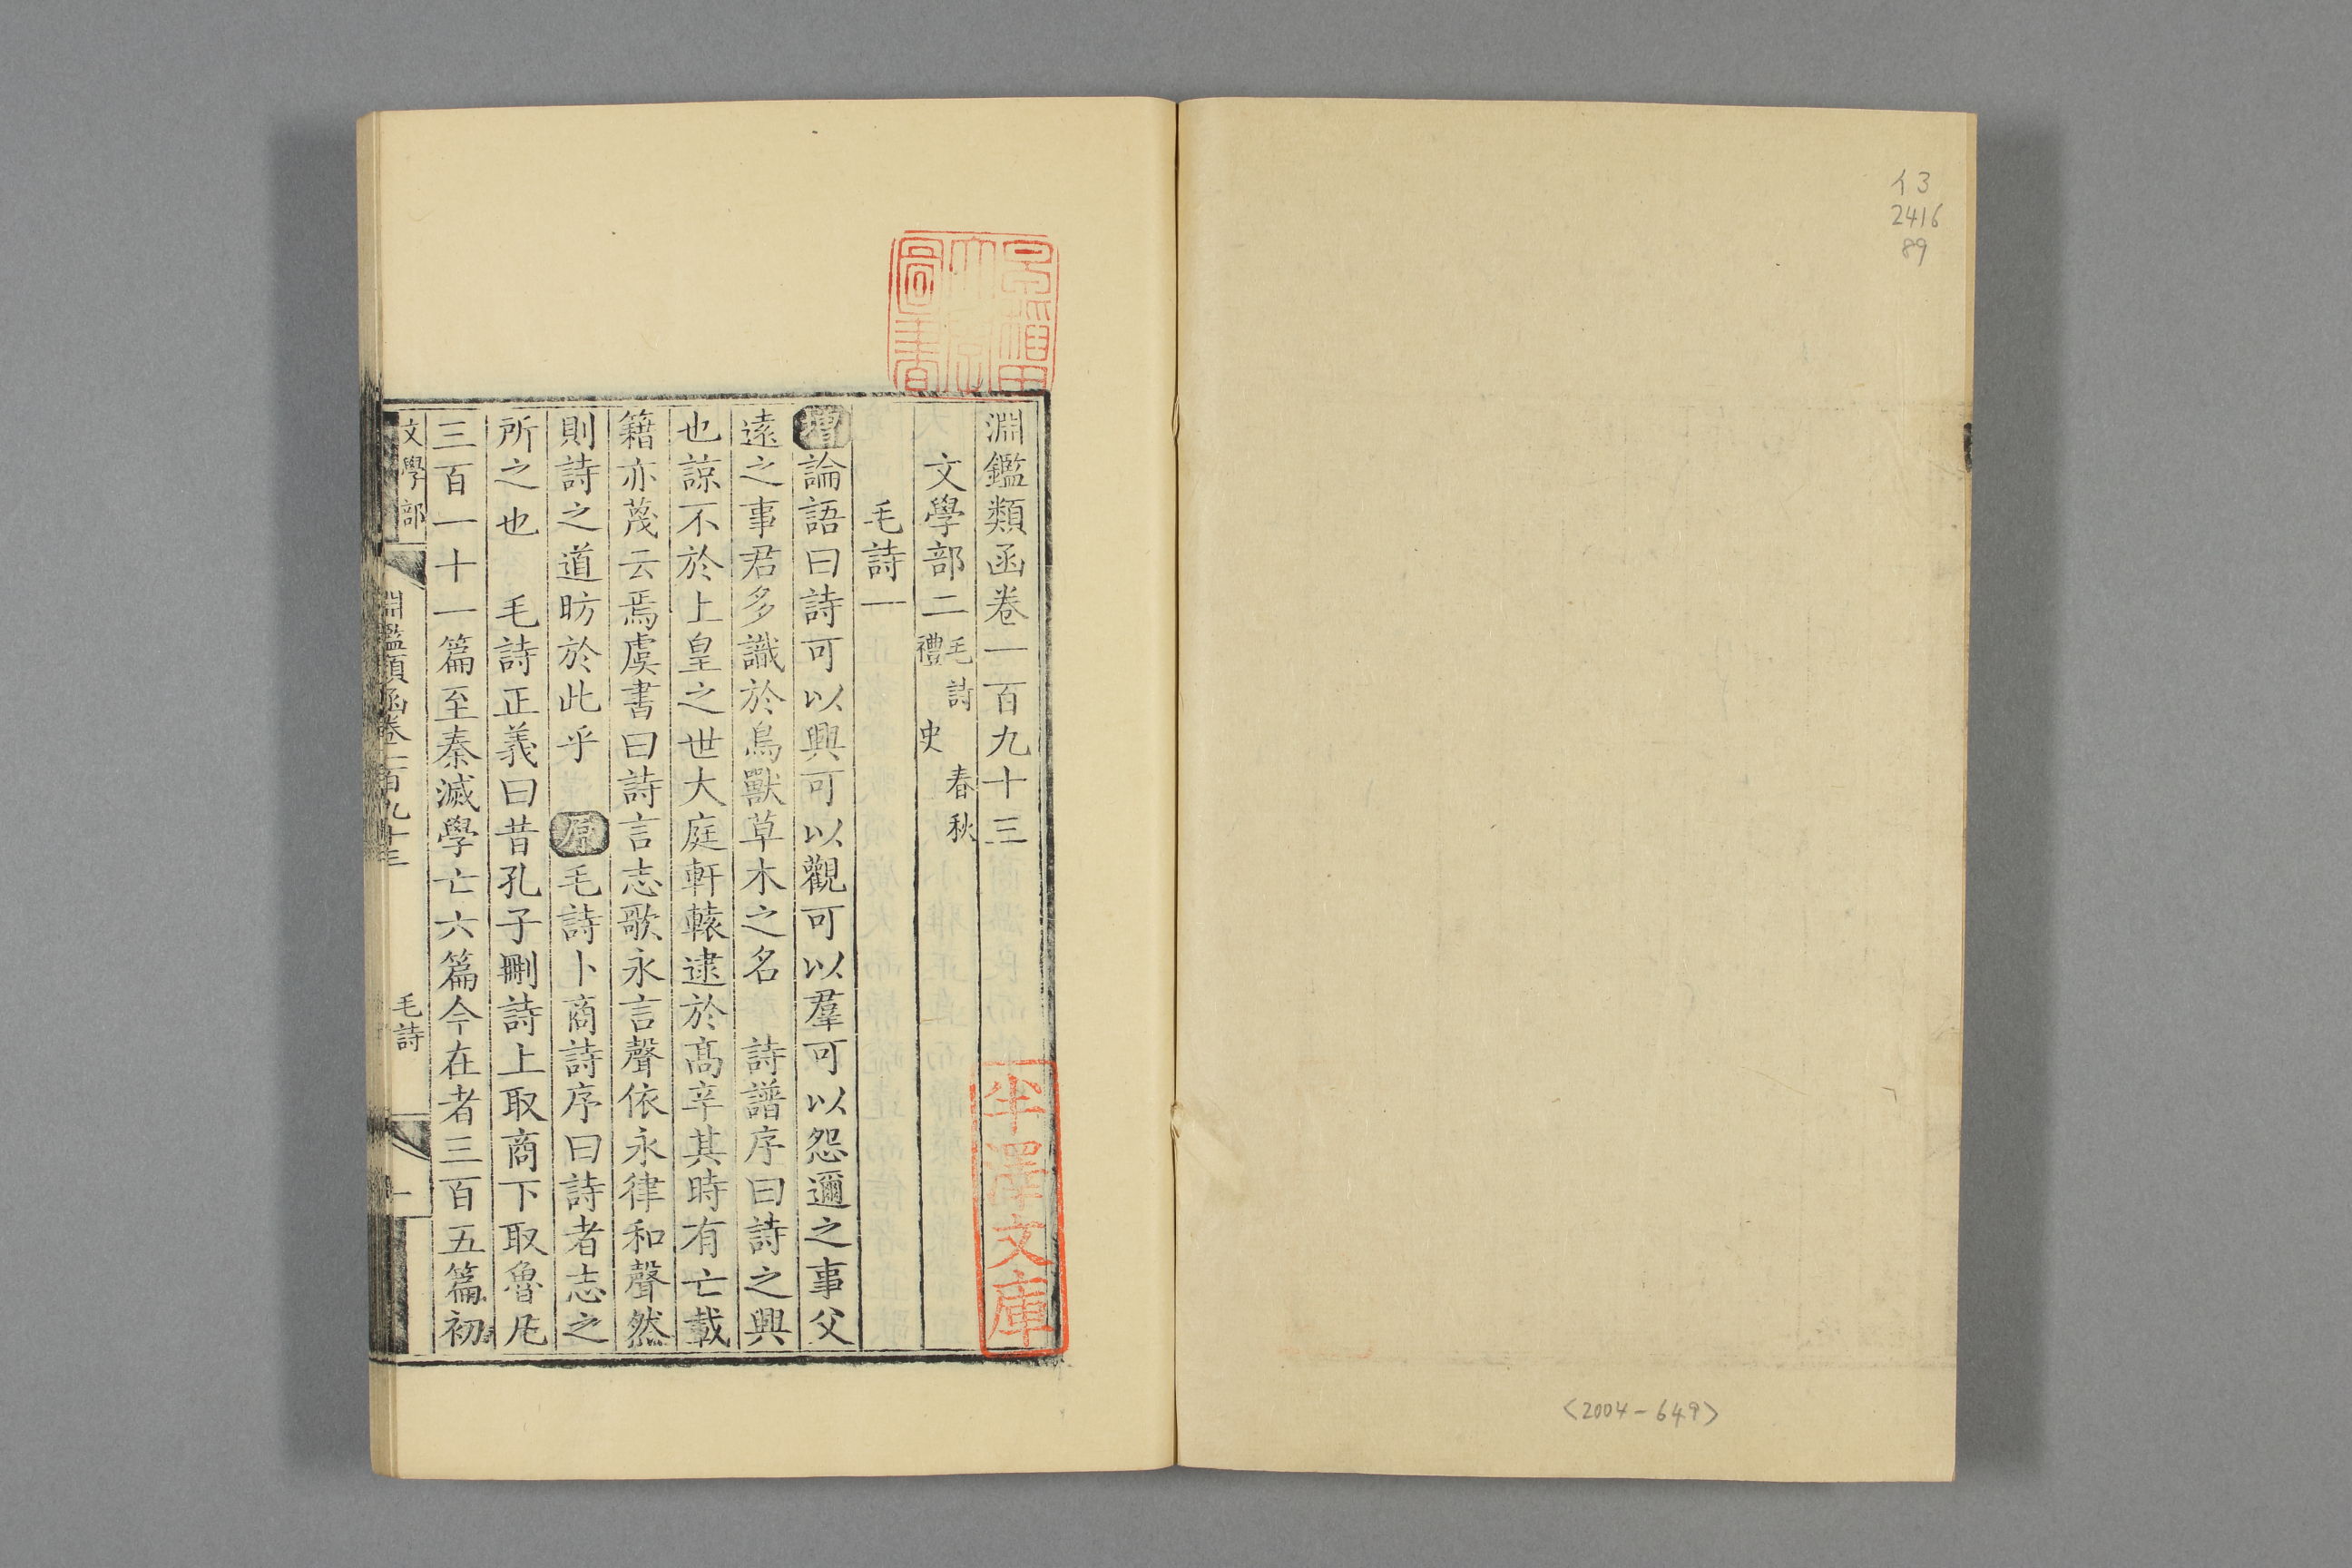 イ3
2416
89
<2004-649>
早稲田
大學
圖書
淵鑑類函卷一百九十三
文學部二毛詩 春秋
禮 史
毛詩一
增論語曰詩可以興可以觀可以羣可以怨邇之事父
遠之事君多識於鳥獸草木之名 詩譜序曰詩之興
也諒不於上皇之世大庭軒轅逮於髙辛其時有亡載
籍亦蔑云焉虞書曰詩言志歌永言聲依永律和聲然
則詩之道昉於此乎 原毛詩卜商詩序曰詩者志之
所之也 毛詩正義曰昔孔子刪詩上取商下取魯凡
三百一十一篇至秦滅學亡六篇今在者三百五篇初
文學部 淵鑑類函卷一百九十三 毛詩 一
半澤文庫